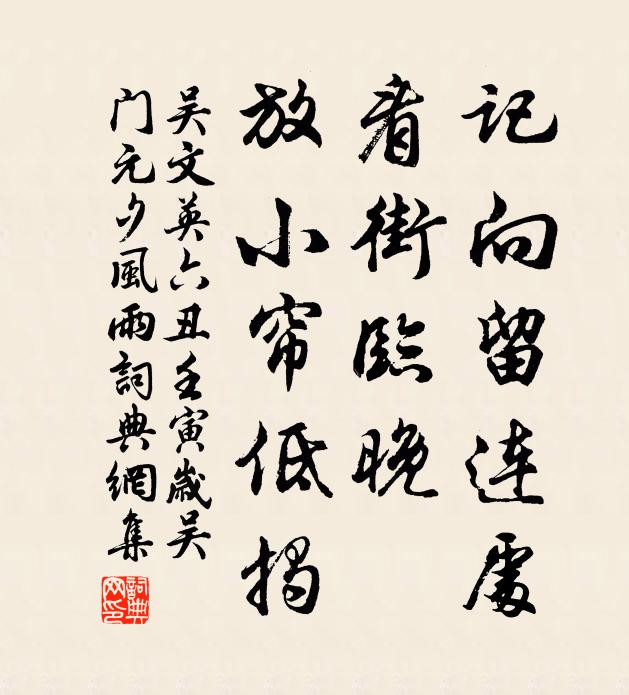 记向留连處
看街临晚
放小帘低揭
吴文英六丑壬寅歲吴
门元夕風雨詞典網集
詞典网印